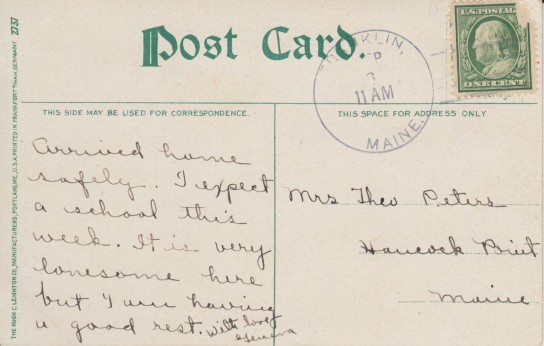 Post Card.
U.S. POSTAGE
ONE CENT
FRANKLIN,
SEP
3
11 AM
MAINE.
THIS SIDE MAY BE USED FOR CORRESPONDENCE.
THIS SPACE FOR ADDRESS ONLY
Arrived home
safely. I expect
a school this
week. It is very
lonesome here
but I am having
a good rest. With love
Geneva
Mrs Theo Peters
Hancock Point
Maine
THE HUGH C. LEIGHTON CO., MANUFACTURERS, PORTLAND, ME., U.S.A. PRINTED IN FRANKFORT GERMANY
2737